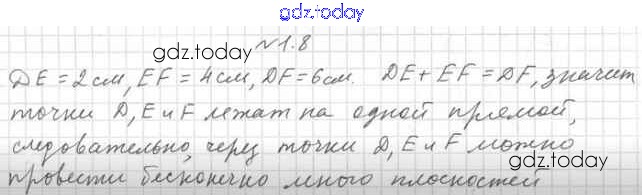 gdz.today
№1.8
gdz.today
DE = 2 см, EF = 4 см, DF = 6 см. DE + EF = DF, значит
точки D, E и F лежат на одной прямой,
gdz.today
следовательно, через точки D, E и F можно
gdz.today
провести бесконечно много плоскостей